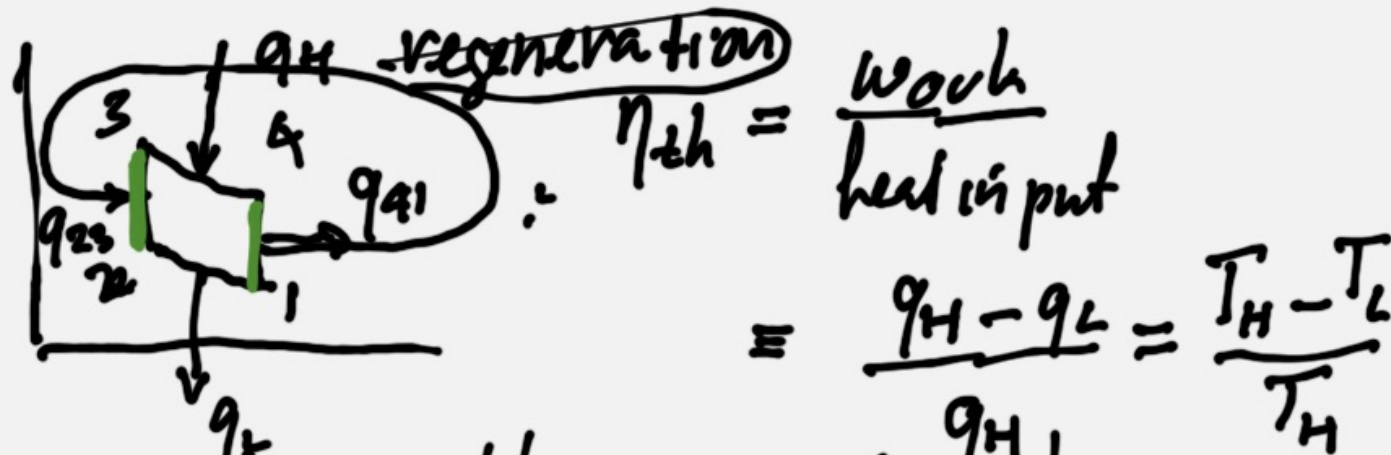 qH regeneration
3
4
q41
q23
2
1
qL
ηth = work
heat input
≡ qH - qL = TH - TL
qH TH